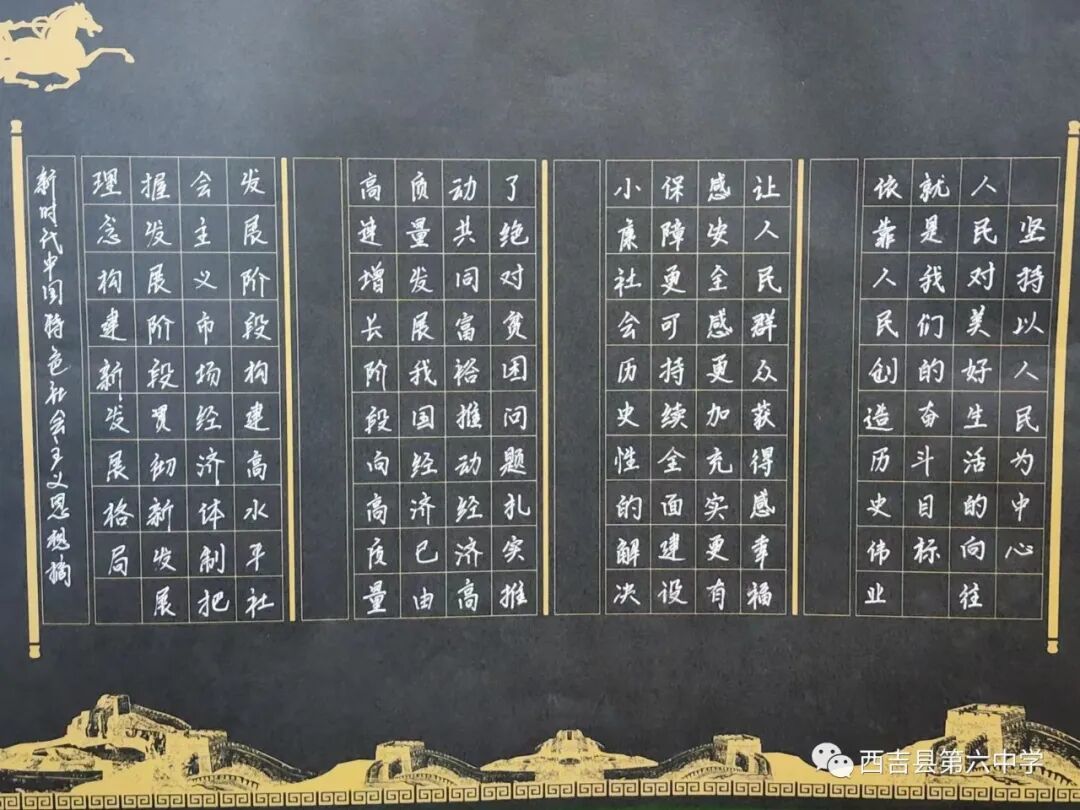 坚持以人民为中心
人民对美好生活的向往
就是我们的奋斗目标
依靠人民创造历史伟业
让人民群众获得感幸福
感安全感更加充实更有
保障更可持续全面建设
小康社会历史性的解决
了绝对贫困问题扎实推
动共同富裕推动经济高
质量发展我国经济已由
高速增长阶段向高质量
发展阶段构建高水平社
会主义市场经济体制把
握发展阶段贯彻新发展
理念构建新发展格局
新时代中国特色社会主义思想摘
西吉县第六中学